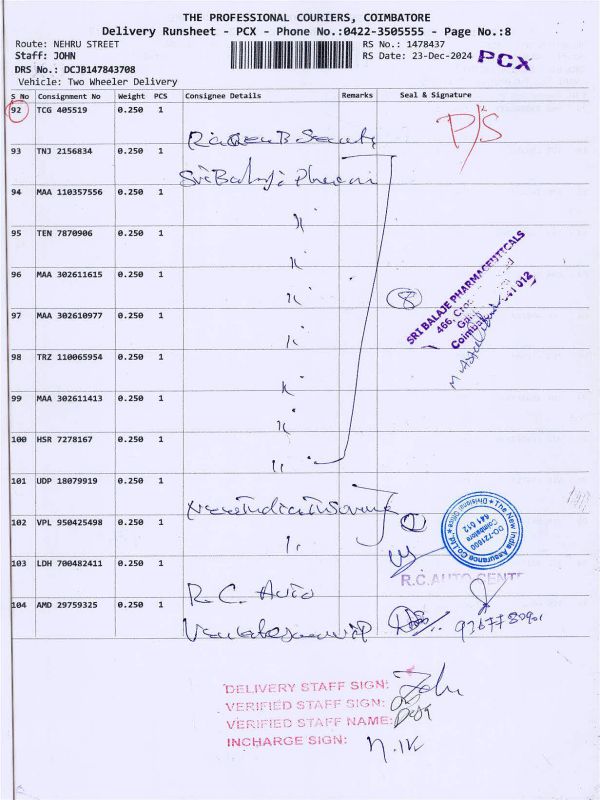 THE PROFESSIONAL COURIERS, COIMBATORE
Delivery Runsheet - PCX - Phone No.:0422-3505555 - Page No.:8
Route: NEHRU STREET
RS No.: 1478437
Staff: JOHN
RS Date: 23-Dec-2024
PCX
DRS No.: DCJB147843708
Vehicle: Two Wheeler Delivery
S No Consignment No Weight PCS Consignee Details Remarks Seal & Signature
92 TCG 405519 0.250 1
P/S
93 TNJ 2156834 0.250 1
Sri Balaji
94 MAA 110357556 0.250 1
95 TEN 7870906 0.250 1
96 MAA 302611615 0.250 1
8
SRI BALAJE PHARMACEUTICALS
466,
Coimbatore
641 012
97 MAA 302610977 0.250 1
98 TRZ 110065954 0.250 1
99 MAA 302611413 0.250 1
100 HSR 7278167 0.250 1
101 UDP 18079919 0.250 1
The New India Assurance Co. Ltd.
Divisional Office
DO-721600
Coimbatore
641 012
102 VPL 950425498 0.250 1
103 LDH 700482411 0.250 1
R.C. AUTO CENT
R.C. Auto
104 AMD 29759325 0.250 1
DELIVERY STAFF SIGN: John
VERIFIED STAFF SIGN:
VERIFIED STAFF NAME:
INCHARGE SIGN: